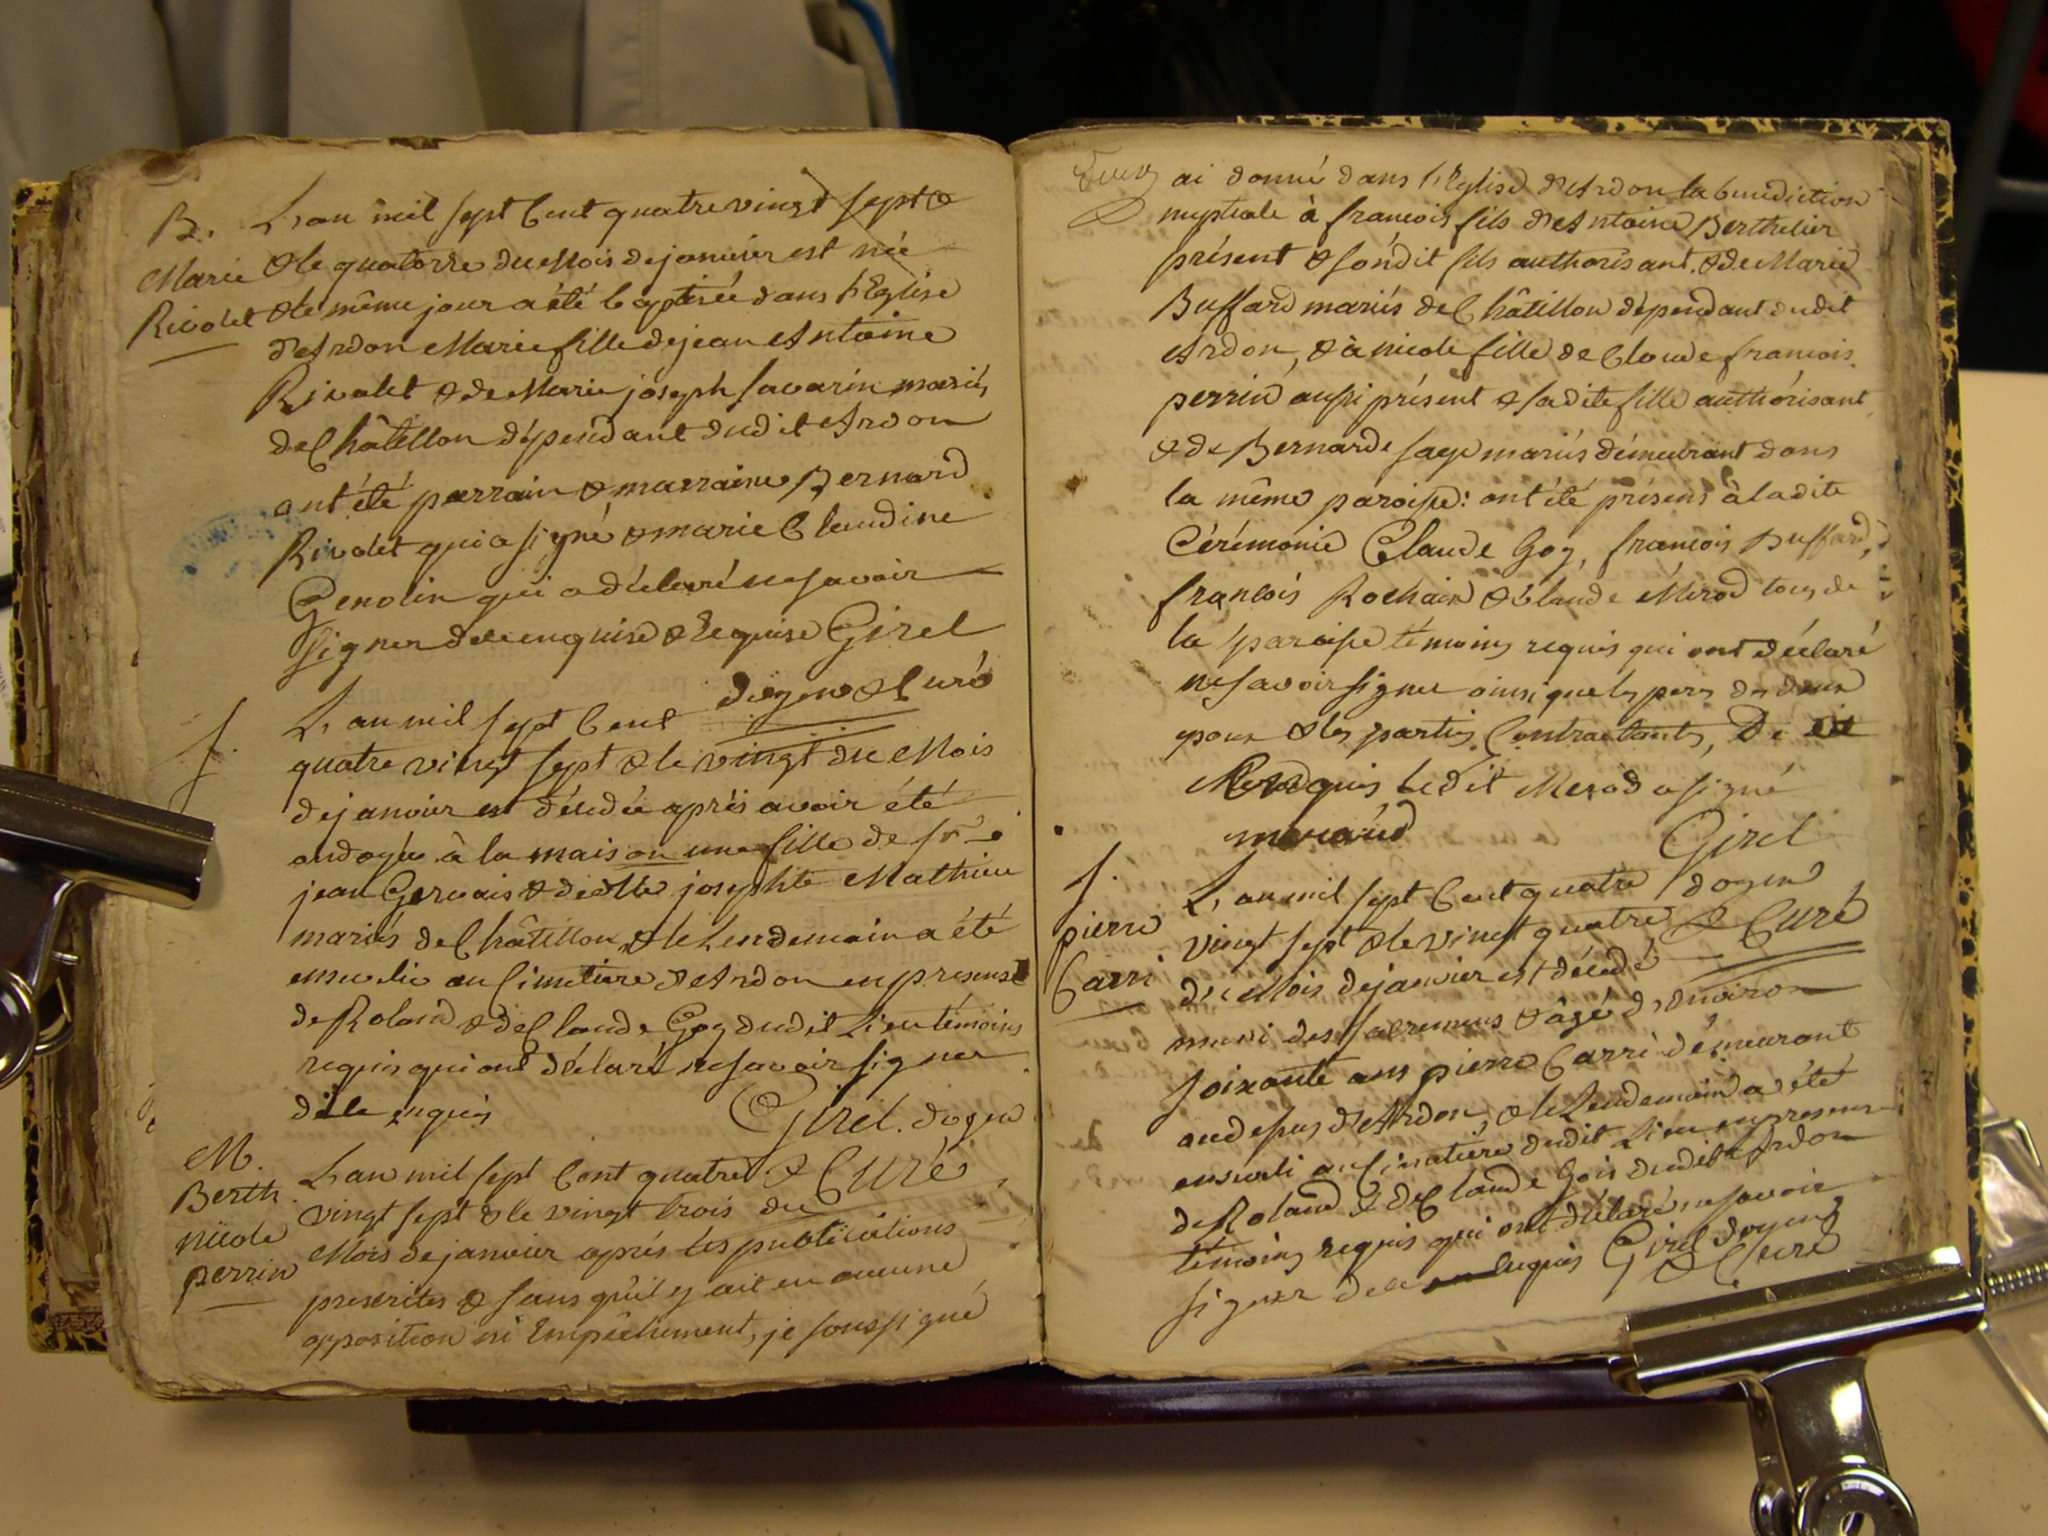 B. L'an mil sept Cent quatre vingt sept &
Marie & le quatorze du Mois de janvier est née
Rivolet & le même jour a été baptisée dans l'Eglise
d'Ardon Marie fille de jean Antoine
Rivolet & de Marie joseph Savarin mariés
de Châtillon dépendant dudit Ardon
ont été parrain & marraine Bernard
Rivolet qui a signé & marie Claudine
Genolin qui a déclaré ne savoir
signer de ce enquise & requise Girel
doyen & Curé
f. L'an mil sept Cent
quatre vingt sept & le vingt du Mois
de janvier est décédée après avoir été
ondoyée à la maison une fille de
jean Gervais & de josephte Mathieu
mariés de Châtillon & le Lendemain a été
ensevelie au Cimetiere d'Ardon en presense
de Roland & de Claude Goy dudit Lieu témoins
requis qui ont déclaré ne savoir signer
de ce enquis Girel. doyen
& Curé
M. L'an mil sept Cent quatre
Berth. vingt sept & le vingt trois du
nicole Mois de janvier après les publications
perrin prescrites & sans qu'il y ait eu aucune
opposition ni Empêchement, je soussigné
ai donné dans l'Eglise d'Ardon la benediction
nuptiale à francois fils d'Antoine Berthelier
présent & sondit fils authorisant & de Marie
Buffard mariés de Châtillon dépendant dudit
Ardon, & à nicole fille de Claude francois
perrin aussi présent & sadite fille authórisant
& de Bernarde Sage mariés démeurant dans
la même paroisse: ont été présens à ladite
Cérémonie Claude Goy, francois Buffard,
francois Rochaix & Claude Mérod tous de
la paroisse témoins requis qui ont déclaré
ne savoir signer ainsi que les peres des deux
& les parties Contractants, De
enquis Ledit Merod a signé
Girel
doyen
& Curé
f. L'an mil sept Cent quatre
pierre vingt sept & le vingt quatre
Carri du Mois de janvier est décédé
muni des sacremens & âgé d'environ
soixante ans pierre Carri démeurant
au dessus d'Ardon, & le Lendemain a été
enseveli au Cimetière dudit Lieu en presense
de Roland & de Claude Gois dudit Ardon
témoins requis qui ont déclaré ne savoir
signer de ce enquis Girel doyen
& Curé